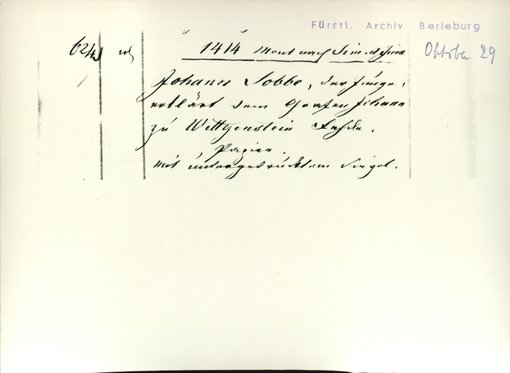 Fürstl. Archiv Berleburg
62/4 1414 Mont nach Sim. et Jude Oktober 29
Johann Sobbe, der junge,
erklärt dem Grafen Johann
zu Wittgenstein Fehde.
Papier.
Mit untergedrücktem Siegel.